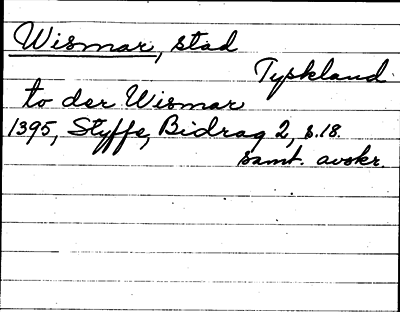 Wismar, stad
Tyskland.
to der Wismar
1395, Styffe, Bidrag 2, s. 18.
samt. avskr.